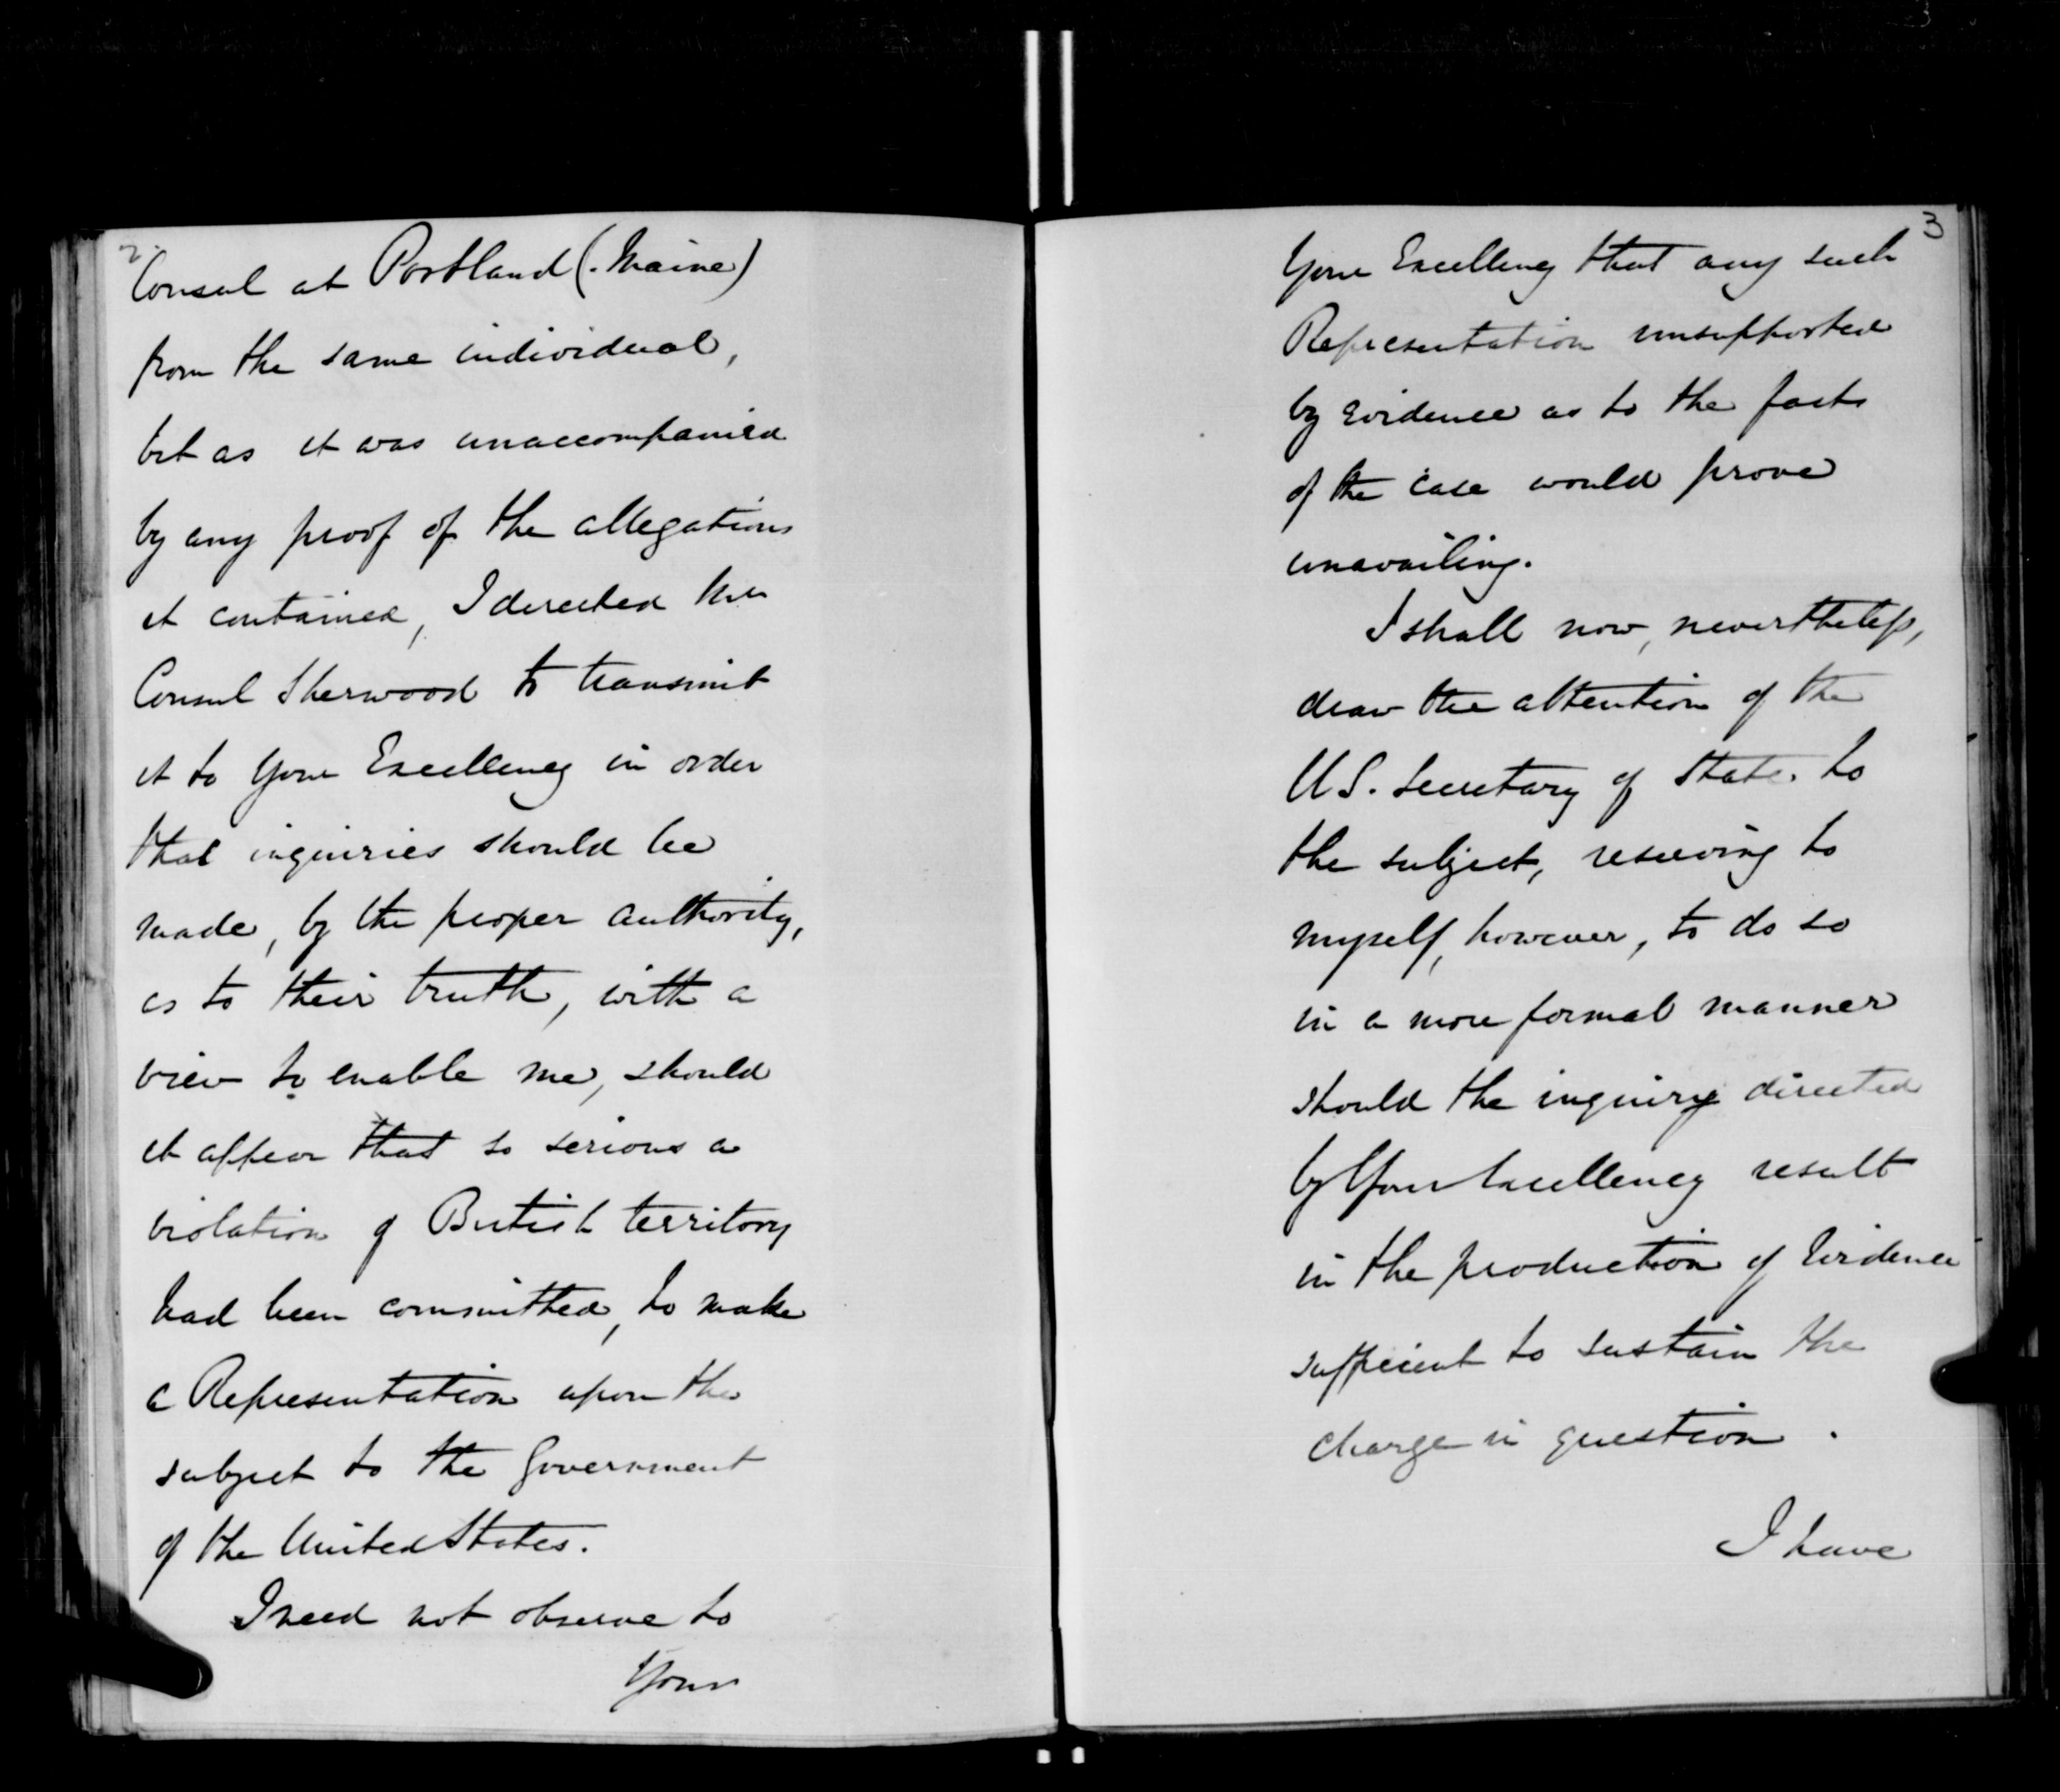 2
Consul at Portland (Maine)
from the same individual,
but as it was unaccompanied
by any proof of the allegations
it contained, I directed
Consul Sherwood to transmit
it to Your Excellency in order
that inquiries should be
made, by the proper authority,
as to their truth, with a
view to enable me, should
it appear that so serious a
violation of British territory
had been committed, to make
a Representation upon the
subject to the Government
of the United States.
I need not observe to
Your
3
Your Excellency that any such
Representation unsupported
by Evidence as to the facts
of the case would prove
unavailing.
I shall now, nevertheless,
draw the attention of the
U.S. Secretary of State to
the subject, reserving to
myself, however, to do so
in a more formal manner
should the inquiry directed
by Your Excellency result
in the production of Evidence
sufficient to sustain the
charge in question.
I have